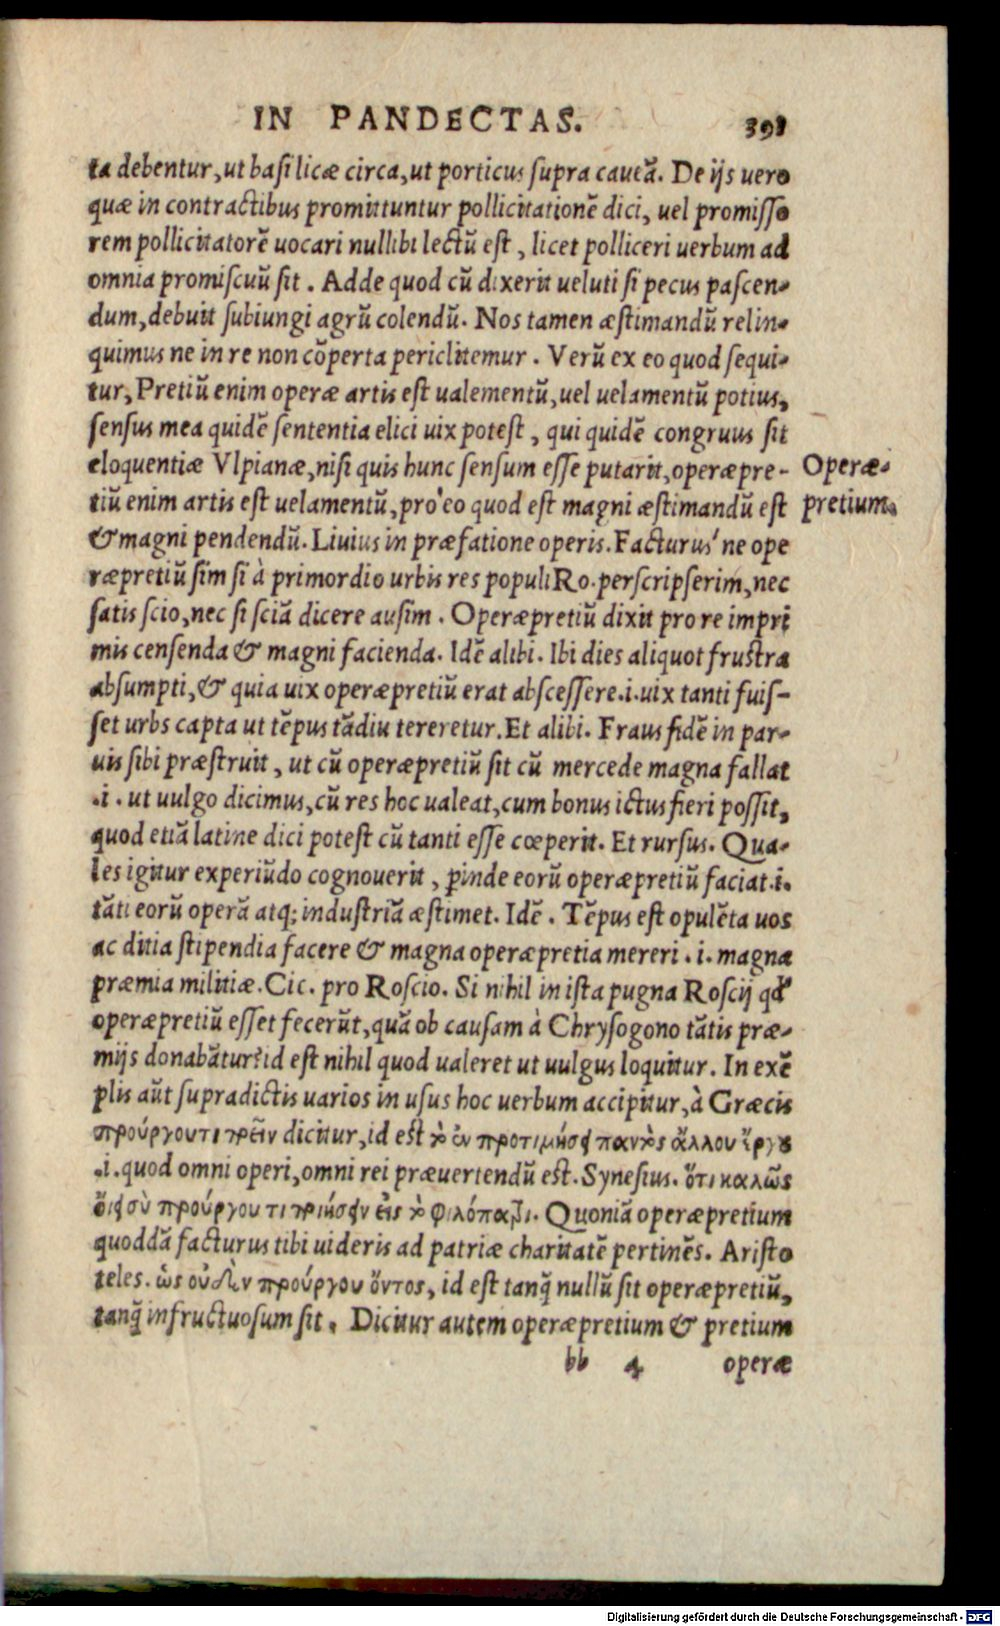 IN PANDECTAS. 391
ta debentur, ut basilicæ circa, ut porticus supra caueā. De ijs uero
quæ in contractibus promittuntur pollicitationē dici, uel promisso
rem pollicitatorē uocari nullibi lectū est, licet polliceri uerbum ad
omnia promiscuū sit. Adde quod cū dixerit ueluti si pecus pascen-
dum, debuit subiungi agrū colendū. Nos tamen æstimandū relin-
quimus ne in re non cōperta periclitemur. Verū ex eo quod sequi-
tur, Pretiū enim operæ artis est ualementū, uel uelamentū potius,
sensus mea quidē sententia elici uix potest, qui quidē congruus sit
eloquentiæ Vlpianæ, nisi quis hunc sensum esse putarit, operæpre-
Operæ-
tiū enim artis est uelamentū, pro eo quod est magni æstimandū est
pretium.
& magni pendendū. Liuius in præfatione operis. Facturus ne ope
ræpretiū sim si à primordio urbis res populi Ro. perscripserim, nec
satis scio, nec si sciā dicere ausim. Operæpretiū dixit pro re impri
mis censenda & magni facienda. Idē alibi. Ibi dies aliquot frustra
absumpti, & quia uix operæpretiū erat abscessere .i. uix tanti fuis-
set urbs capta ut tēpus tādiu tereretur. Et alibi. Fraus fidē in par-
uis sibi præstruit, ut cū operæpretiū sit cū mercede magna fallat
.i. ut uulgo dicimus, cū res hoc ualeat, cum bonus ictus fieri possit,
quod etiā latine dici potest cū tanti esse cœperit. Et rursus. Qua-
les igitur experiūdo cognouerit, ꝑinde eorū operæpretiū faciat .i.
tāti eorū operā atq; industriā æstimet. Idē. Tēpus est opulēta uos
ac ditia stipendia facere & magna operæpretia mereri .i. magna
præmia militiæ. Cic. pro Roscio. Si nihil in ista pugna Roscij qđ
operæpretiū esset fecerūt, quā ob causam à Chrysogono tātis præ-
mijs donabātur? id est nihil quod ualeret ut uulgus loquitur. In exē
plis aūt supradictis uarios in usus hoc uerbum accipitur, à Græcis
προύργου τι ποιεῖν dicitur, id est τὸ ἐν προτιμήσει παντὸς ἄλλου ἔργου
.i. quod omni operi, omni rei præuertendū est. Synesius. ὅτι καλῶς
οἴει σὺ προύργου τι ποιήσειν εἰς τὸ φιλόπατρι. Quoniā operæpretium
quoddā facturus tibi uideris ad patriæ charitatē pertinēs. Aristo
teles. ὡς οὐδὲν προύργου ὄντος, id est tanq̄ nullū sit operæpretiū,
tanq̄ infructuosum sit. Dicitur autem operæpretium & pretium
bb 4 operæ
Digitalisierung gefördert durch die Deutsche Forschungsgemeinschaft - DFG